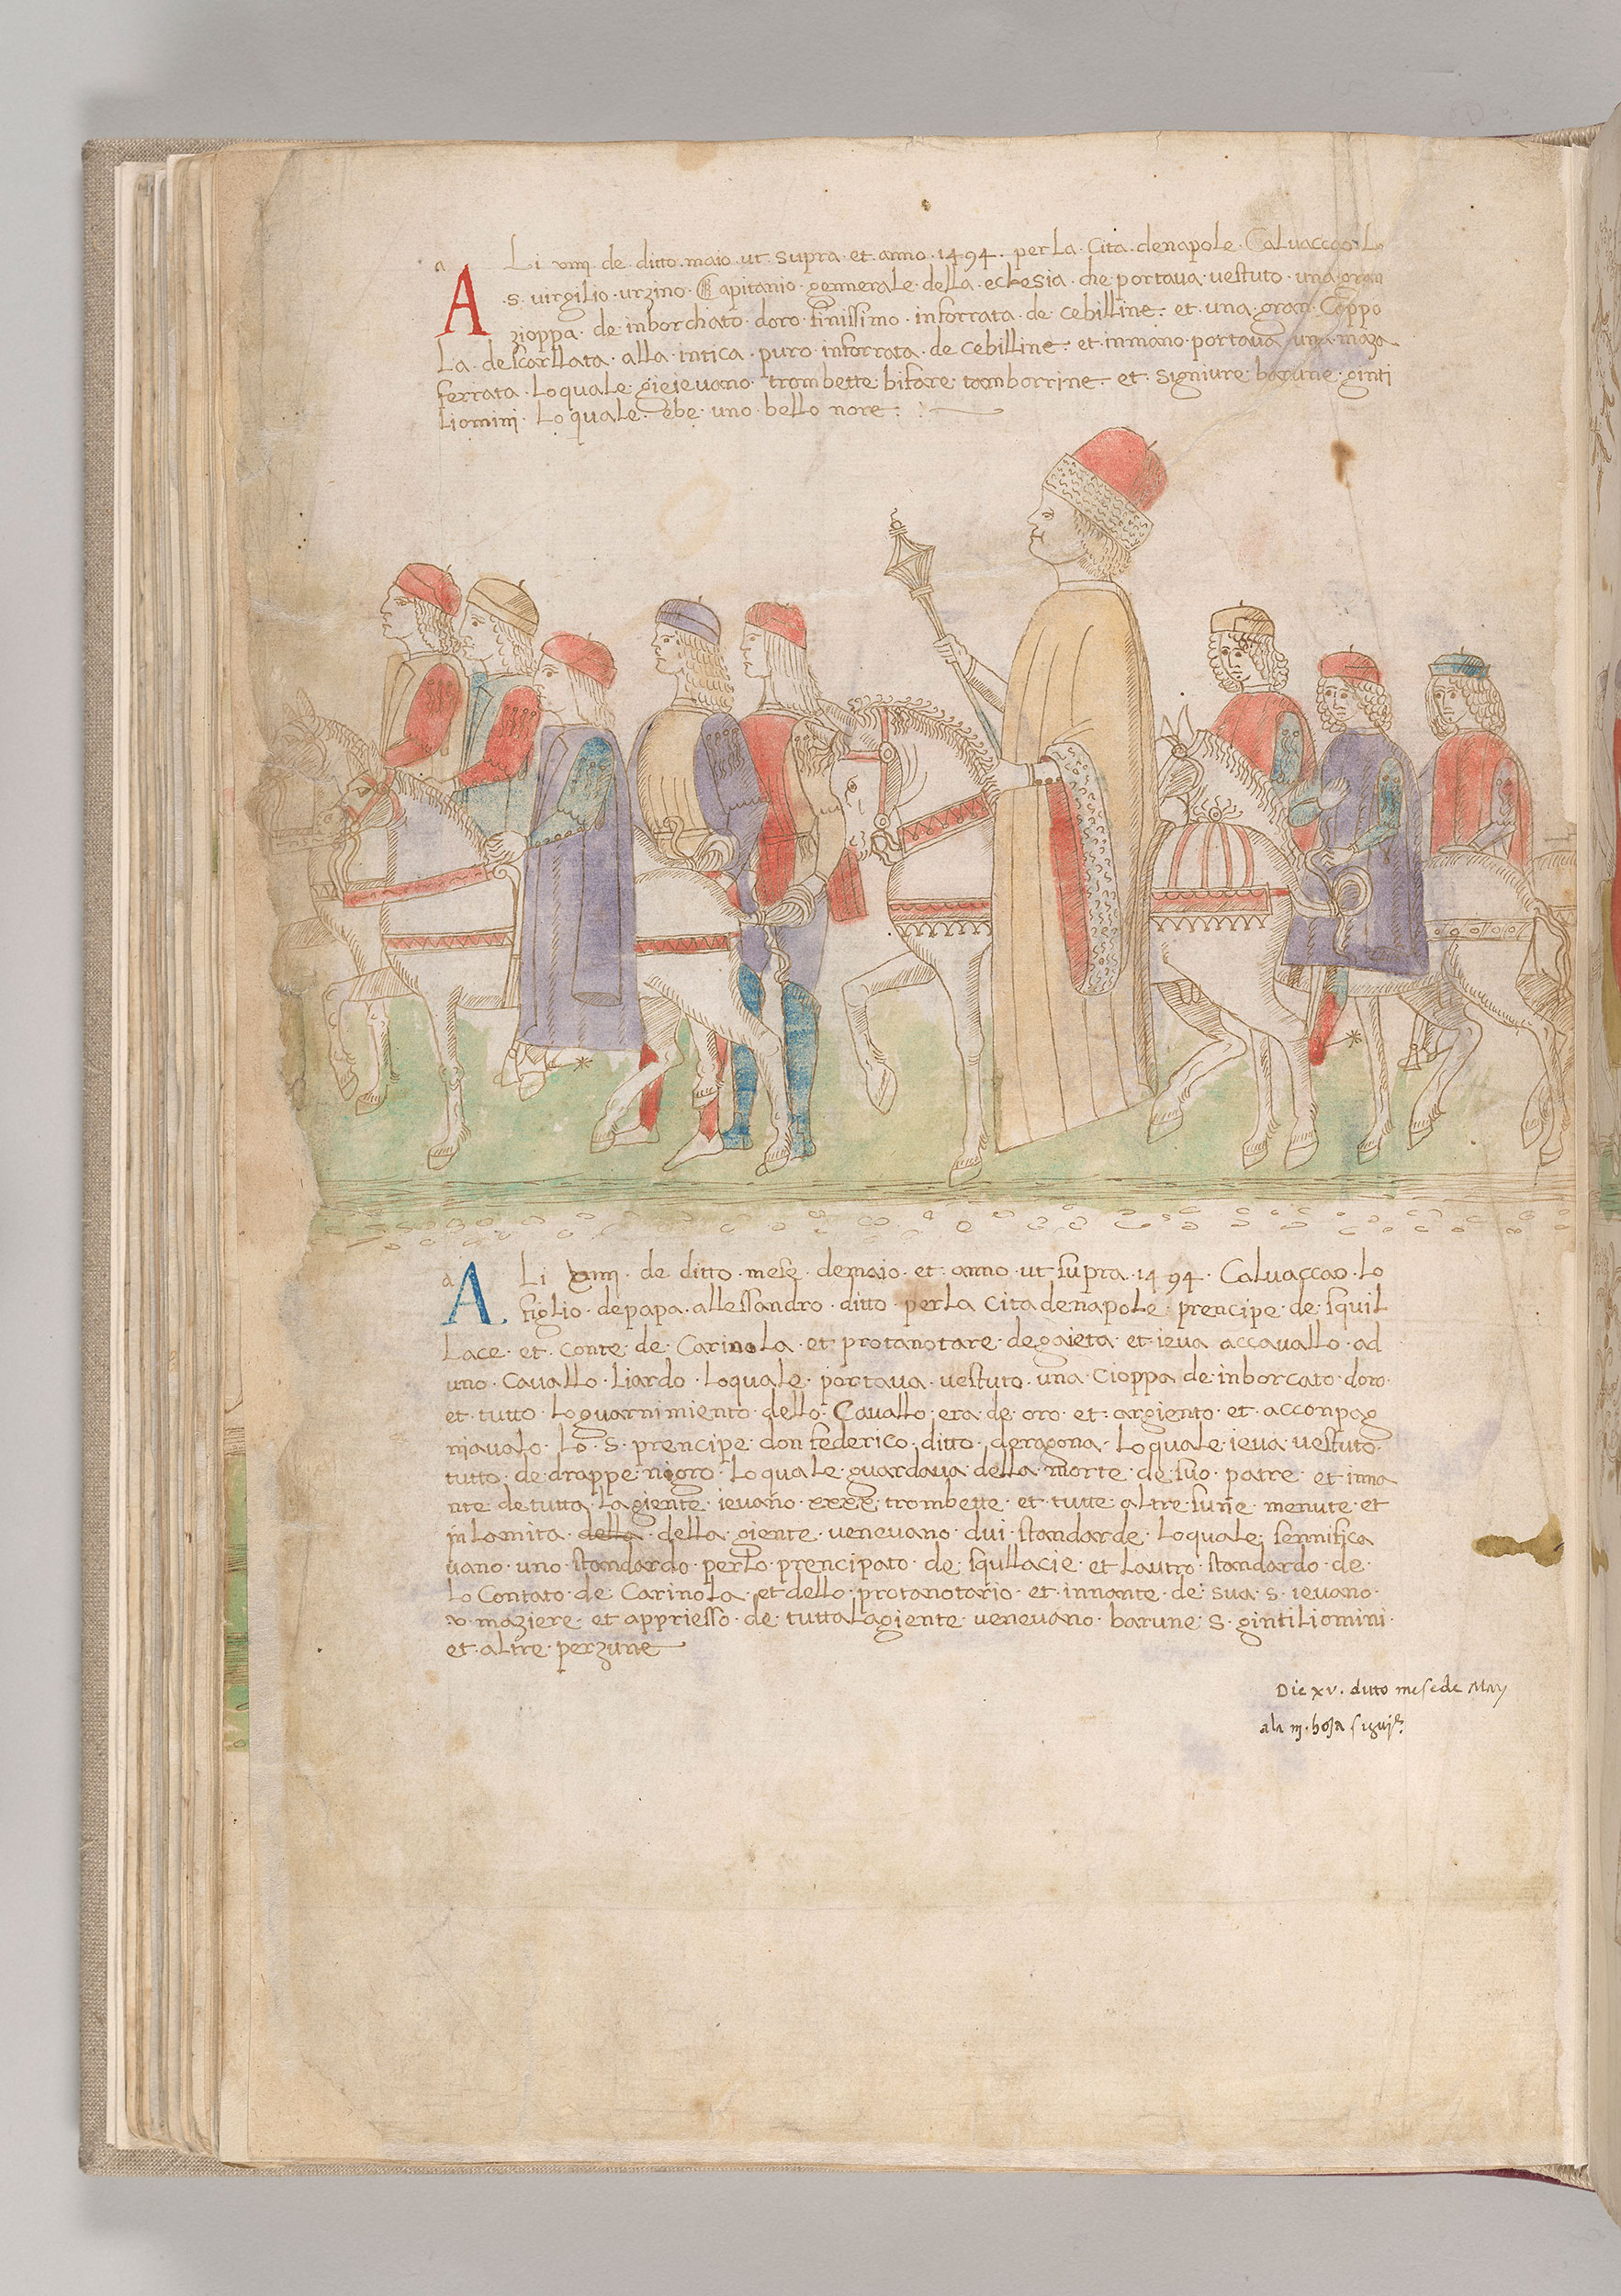 a
A Li xiiij de ditto maio ut supra et anno 1494 perla Cita denapole Calvaccao Lo
s. virgilio urzino Capitanio gennerale della eclesia che portava vestuto una gran
zioppa de inborchato doro finissimo inforrata de cebilline et una gran Coppo
la descarllata alla intica puro inforrata de cebilline et inmano portava una maza
ferrata Loquale giejevano trombette bifare tamborrine et signiure barune ginti
Liomini Lo quale ebe uno bello nore
a
A Li xiiij de ditto mese demaio et anno ut supra 1494 Calvaccao Lo
figlio depapa allessandro ditto perla Cita denapole prencipe de squil
Lace et conte de Carinola et protanotare degaieta et ieva accavallo ad
uno Cavallo Liardo Loquale portava vestuto una Cioppa de inborcato doro
et tutto Loguarnimiento dello Cavallo era de oro et argiento et acconpag
niavalo Lo s. prencipe don federico ditto deragona Loquale ieva vestuto
tutto de drappe nigro Loquale guardava della morte de suo patre et inna
nte detutta Lagiente ievano xxxx trombette et tutte altre sune menute et
in Lomita della della giente venevano dui standarde Loquale sennifica
vano uno standardo perlo prencipato de squllacie et Lautro standardo de
Lo Contato de Carinola et dello protanotario et innante de sua s. ievano
v maziere et appriesso de tutta Lagiente venevano barune s. gintiliomini
et altre perzune
Die xv. ditto mesede May
ala iij. hoja